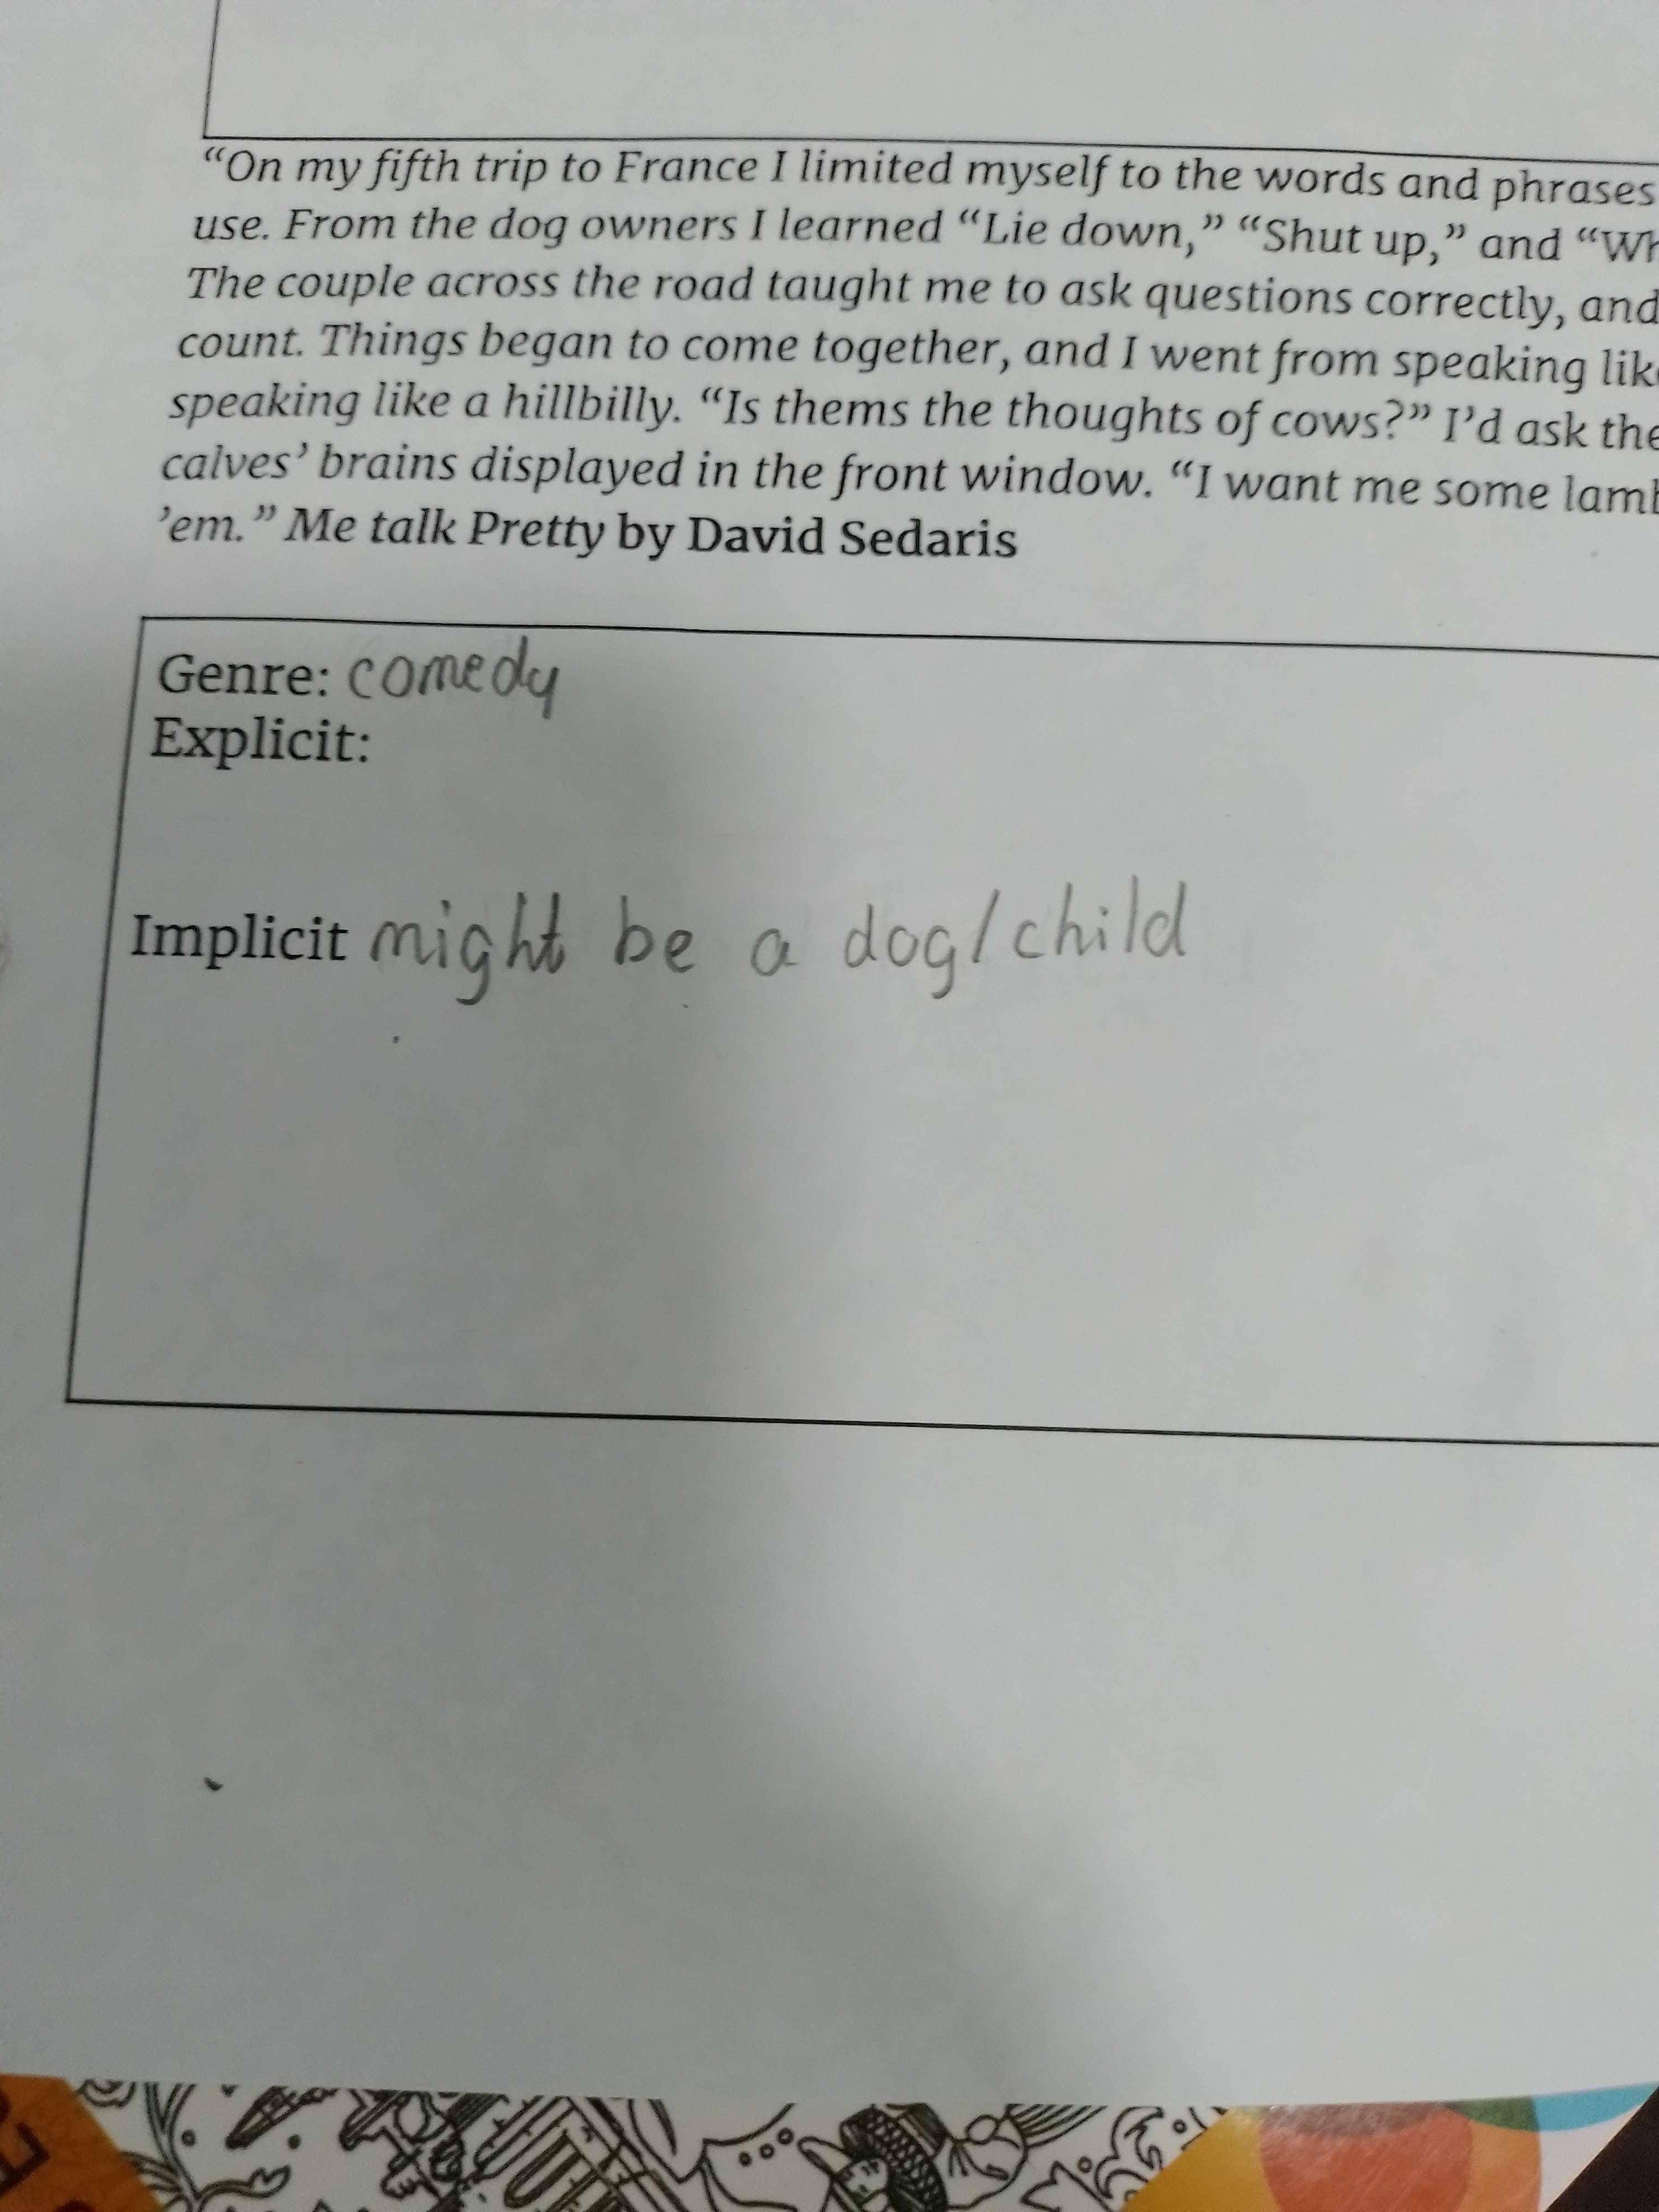 “On my fifth trip to France I limited myself to the words and phrases
use. From the dog owners I learned “Lie down,” “Shut up,” and
The couple across the road taught me to ask questions correctly, and
count. Things began to come together, and I went from speaking
speaking like a hillbilly. “Is thems the thoughts of cows?” I’d ask the
calves’ brains displayed in the front window. “I want me some
’em.” Me talk Pretty by David Sedaris
Genre: comedy
Explicit:
Implicit might be a dog/child